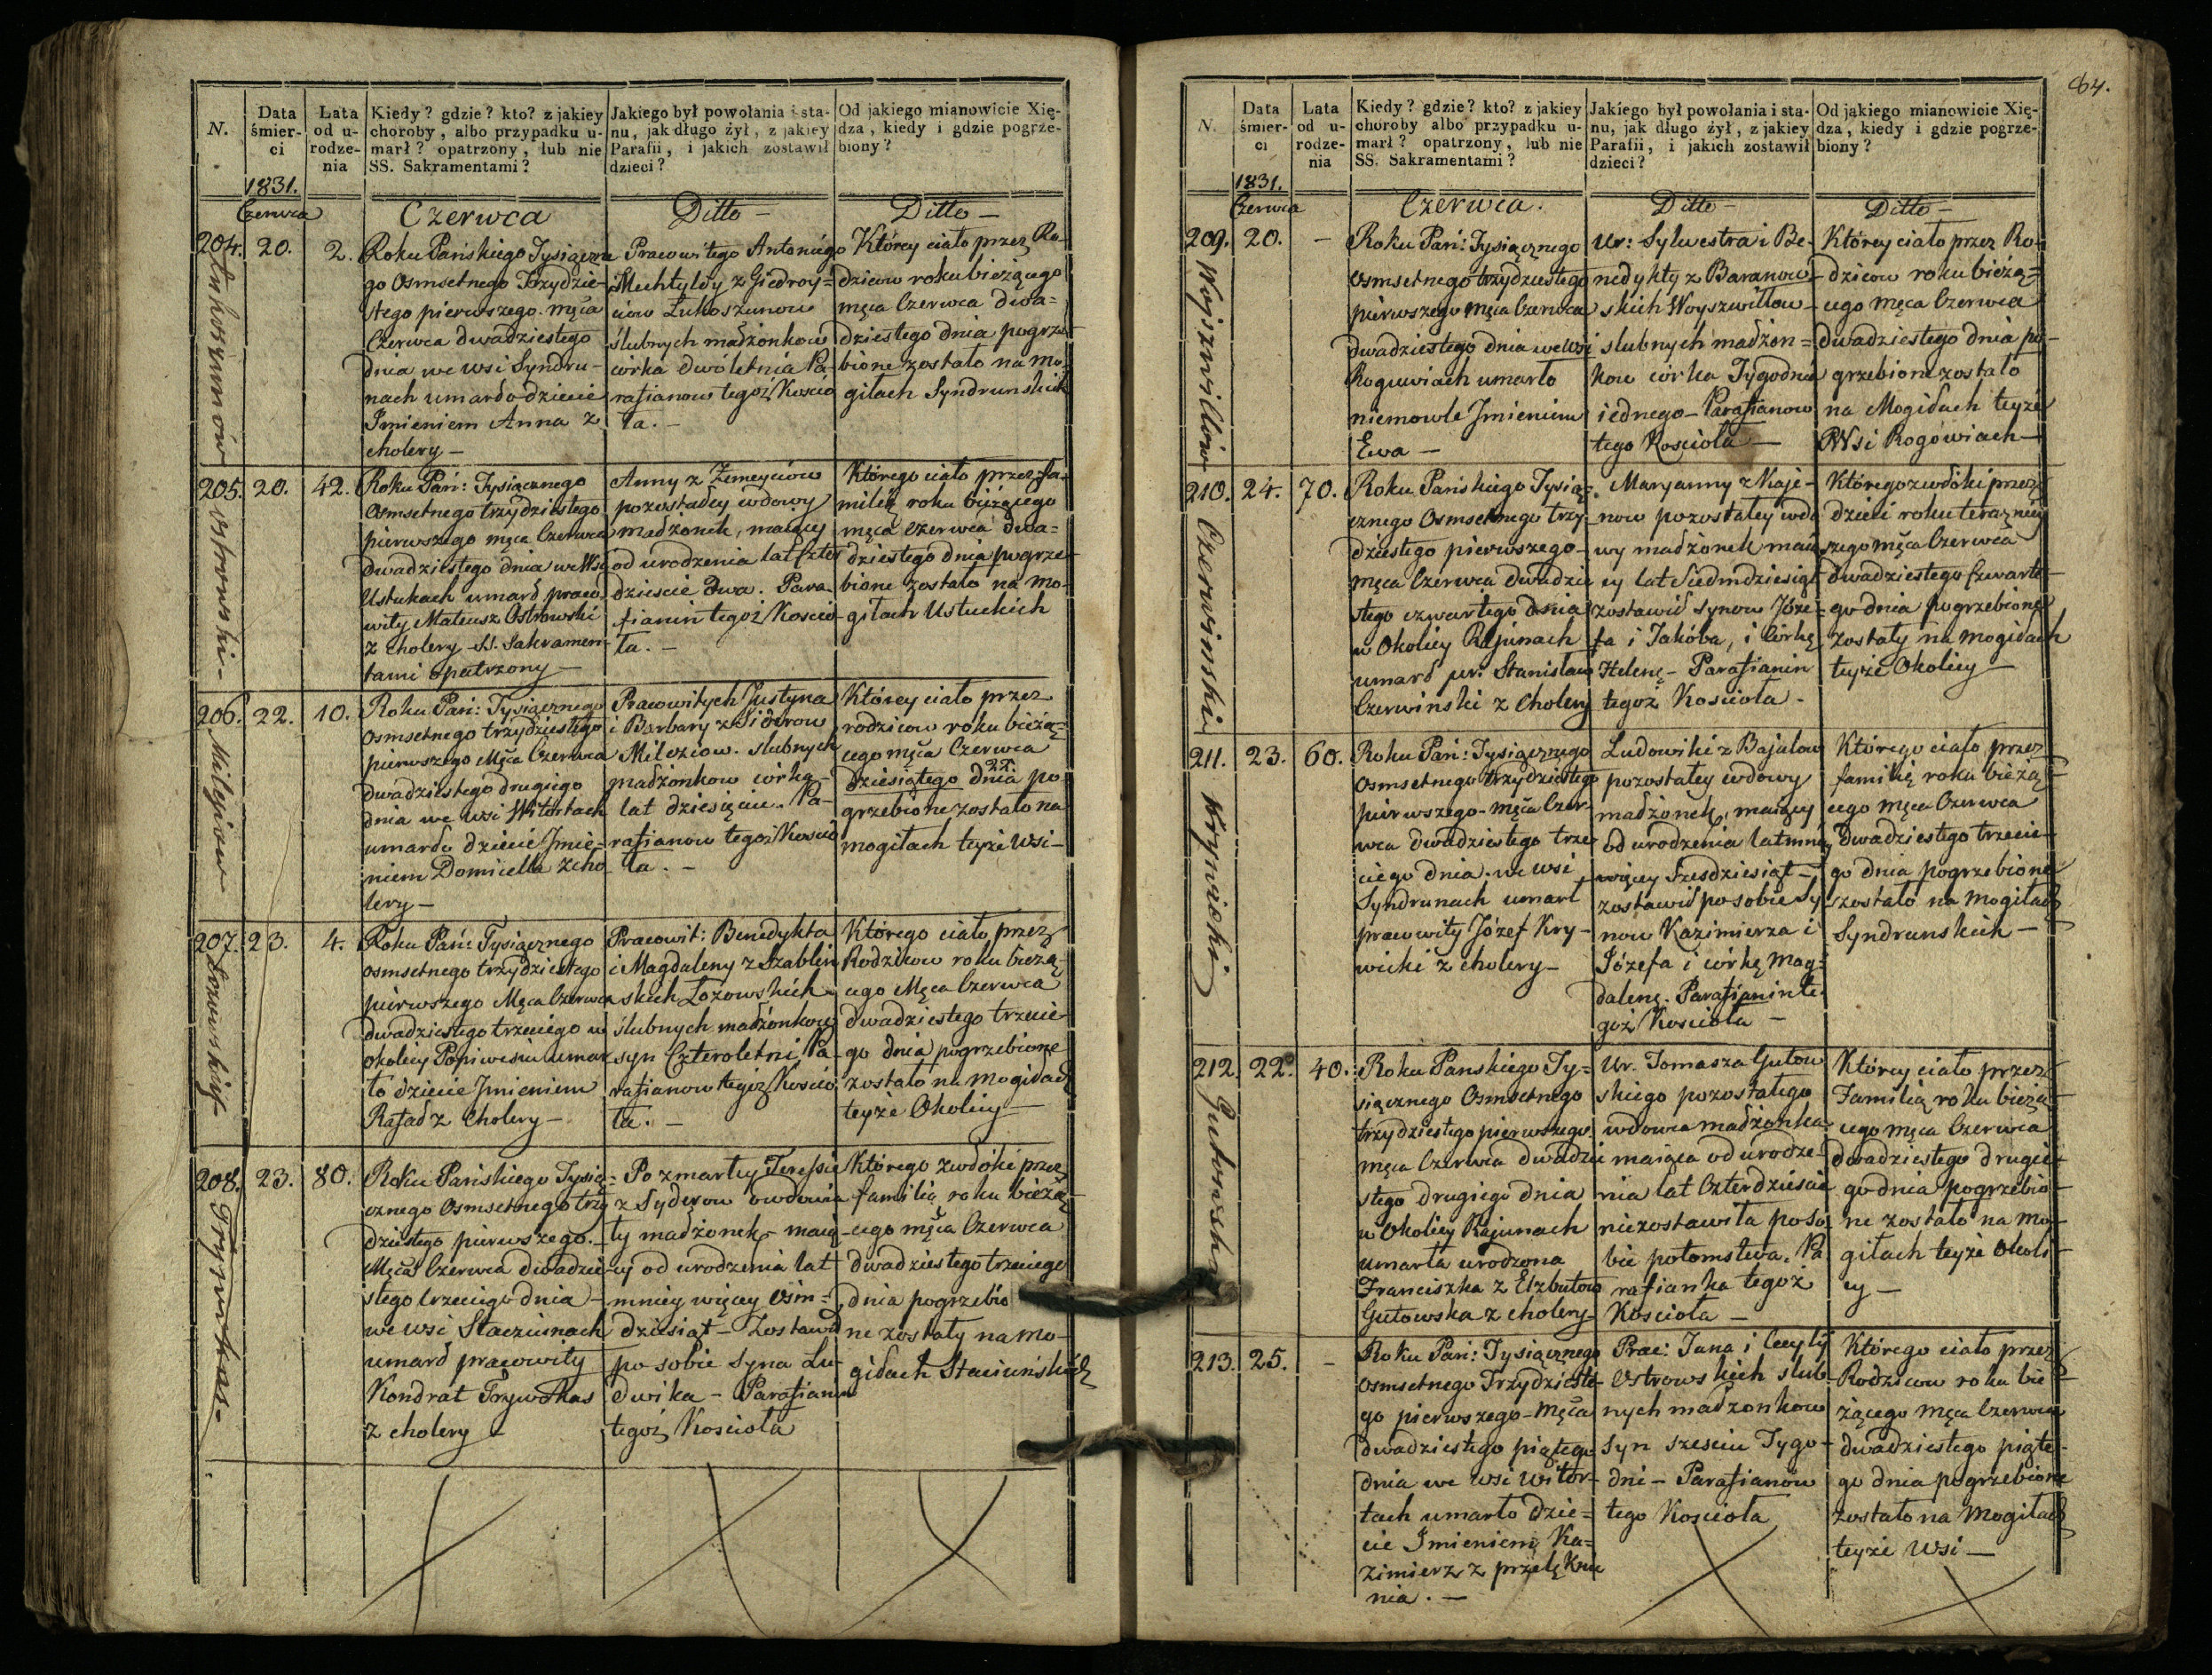 N.
Data śmier-ci
Lata od u-rodze-nia
Kiedy? gdzie? kto? z jakiey
choroby, albo przypadku u-
marł? opatrzony, lub nie
SS. Sakramentami?
Jakiego był powołania i sta-
nu, jak długo żył, z jakiey
Parafii, i jakich zostawił
dzieci?
Od jakiego mianowicie Xię-
dza, kiedy i gdzie pogrze-
biony?
1831.
Czerwca
Czerwca
Ditto —
Ditto —
204. 20. 2.
Łukoszunow
Roku Pańskiego Tysiączne
go Osmsetnego Trzydzie-
stego pierwszego męca
Czerwca dwadziestego
dnia we wsi Syndru-
nach umarło dziecie
Imieniem Anna z
cholery —
Pracowitego Antoniego
Mechtyldy z Giedroy=
ciow Łukoszunow
ślubnych małżonkow
corka dwóletnia Pa-
rafianow tegoż Kościo
ła. —
Którey ciało przez Ro-
dzicow roku bieżącego
męca Czerwca dwa=
dziestego dnia pogrze-
bione zostało na mo-
giłach Syndrunskich
205. 20. 42.
Ostrowski —
Roku Pań: Tysiącznego
Osmsetnego trzydziestego
pierwszego męca Czerwca
dwadziestego dnia we Wsi
Ustukach umarł praco
wity Mateusz Ostrowski
z cholery SS. Sakramen-
tami opatrzony —
Anny z
pozostałey wdowy
małżonek, maiący
od urodzenia lat czter
dzieście dwa. Para-
fianin tegoż Koscio
ła. —
Którego ciało przez fa-
milią roku bieżącego
męca czerwca dwa-
dziestego dnia pogrze-
bione zostało na mo-
giłach Ustuckich
206. 22. 10.
Roku Pań: Tysiącznego
osmsetnego trzydziestego
pierwszego Męca Czerwca
dwadziestego drugiego
dnia we wsi Witortach
umarło dziecie Imie-
niem Domicella z cho
lery —
Pracowitych Justyna
i Barbary z Sidorow
Mileziow. slubnych
małżonkow corka
lat dziesięciu. Pa-
rafianow tegoż Koscio
ła. —
Którey ciało przez
rodzicow roku bieżą=
cego męca Czerwca
22.
dziesiątego dnia po-
grzebione zostało na
mogiłach teyże Wsi —
207. 23. 4.
Łozowskich
Roku Pań: Tysiącznego
osmsetnego trzydziestego
pierwszego Męca Czerwca
dwadziestego trzeciego w
okolicy Poniwesiu umar
ło dziecie Imieniem
Rafał z Cholery —
Pracowit: Benedykta
i Magdaleny z Szablin
skich Łozowskich
ślubnych małżonkow
syn Czteroletni, Pa-
rafianow tegoż Koscio
ła. —
Którego ciało przez
Rodzicow roku bieżą-
cego Męca Czerwca
dwadziestego trzecie-
go dnia pogrzebione
zostało na mogiłach
teyże Okolicy —
208. 23. 80.
Roku Pańskiego Tysią=
cznego Osmsetnego trzy
dziestego pierwszego. —
Męca Czerwca dwadzie-
stego trzeciego dnia —
we wsi Staciunach
umarł pracowity
Kondrat
z cholery —
Po zmarłey Teressie
z Syderow owdowia
ły małżonek, maią-
cy od urodzenia lat
mniey więcey osm=
dziesiąt — Zostawił
po sobie syna Lu-
dwika — Parafianin
tegoż Kosciola
Którego zwłoki przez
familią roku bieżą
cego męca Czerwca
dwadziestego trzeciego
dnia pogrzebio
ne zostały na mo-
giłach Staciunskich
64.
N.
Data śmier-ci
Lata od u-rodze-nia
Kiedy? gdzie? kto? z jakiey
choroby albo przypadku u-
marł? opatrzony, lub nie
SS. Sakramentami?
Jakiego był powołania i sta-
nu, jak długo żył, z jakiey
Parafii, i jakich zostawił
dzieci?
Od jakiego mianowicie Xię-
dza, kiedy i gdzie pogrze-
biony?
1831.
Czerwca
Czerwca.
Ditto —
Ditto —
209. 20. —
Woyszwiłłow
Roku Pań: Tysiącznego
osmsetnego trzydziestego
pierwszego męca Czerwca
dwadziestego dnia we Wsi
Roguwiach umarło
niemowle Imieniem
Ewa —
Ur: Sylwestra i Be-
nedykty z Baranow-
skich Woyszwiłłow
slubnych małżon=
kow corka Tygodnia
iednego — Parafianow
tego Kosciola —
Którey ciało przez Ro-
dzicow roku bieżą=
cego męca Czerwca
dwadziestego dnia po-
grzebione zostało
na Mogiłach teyże
Wsi Rogowiach —
210. 24. 70.
Czerwinski
Roku Pańskiego Tysią-
cznego Osmsetnego trzy-
dziestego pierwszego-
męca Czerwca dwadzie
stego czwartego dnia
w Okolicy Rajunach
umarł ur: Stanisław
Czerwinski z Cholery
Maryanny z Kaje-
now pozostałey wdo
wy małżonek maią
cy lat Siedmdziesiąt
zostawił synow Józe-
fa i Jakóba, i Córkę
Helenę — Parafianin
tegoż Kosciola —
Którego zwłoki przez
dzieci roku teraźniey
szego męca Czerwca
dwadziestego Czwarte-
go dnia pogrzebione
zostały na mogiłach
teyże Okolicy —
211. 23. 60.
Krywicki
Roku Pań: Tysiącznego
osmsetnego trzydziestego
pierwszego męca Czer-
wca dwadziestego trze
ciego dnia. we wsi
Syndrunach umarł
pracowity Józef Kry-
wicki z cholery —
Ludowiki z Bajulow
pozostałey wdowy
małżonek, maiący
od urodzenia lat mniey
więcey Szesdziesiąt —
zostawił po sobie Sy
now Kazimierza i
Józefa i córkę Mag=
dalenę. Parafianin te-
goż Kosciola —
Którego ciało przez
familię roku bieżą
cego męca Czerwca
dwadziestego trzecie-
go dnia pogrzebione
zostało na mogiłach
Syndrunskich —
212. 22. 40.
Gutowska
Roku Panskiego Ty=
siącznego Osmsetnego
trzydziestego pierwszego
męca Czerwca dwadzie
stego drugiego dnia
w Okolicy Rajunach
umarła urodzona
Franciszka z Elzbutow
Gutowska z cholery —
Ur. Tomasza Gutow
skiego pozostałego
wdowca małżonka
maiąca od urodze-
nia lat Czterdzieście
niezostawiła po so
bie potomstwa. Pa
rafianka tegoż
Kosciola —
Którey ciało przez
Familią roku bieżą
cego męca Czerwca
dwadziestego drugie-
go dnia pogrzebio-
ne zostało na mo-
giłach teyże Okoli
cy —
213. 25. —
Roku Pań: Tysiącznego
osmsetnego Trzydzieste-
go pierwszego — Męca
dwadziestego piątego
dnia we wsi Witor-
tach umarło dzie=
cie Imieniem Ka=
zimierz z przelęknie
nia. —
Prac: Jana i Cecylij
Ostrowskich ślub-
nych małżonkow
syn szesciu Tygo-
dni — Parafianow
tego Kosciola
Którego ciało przez
Rodzicow roku bie
żącego Męca Czerwca
dwadziestego piąte-
go dnia pogrzebione
zostało na Mogiłach
teyże Wsi —